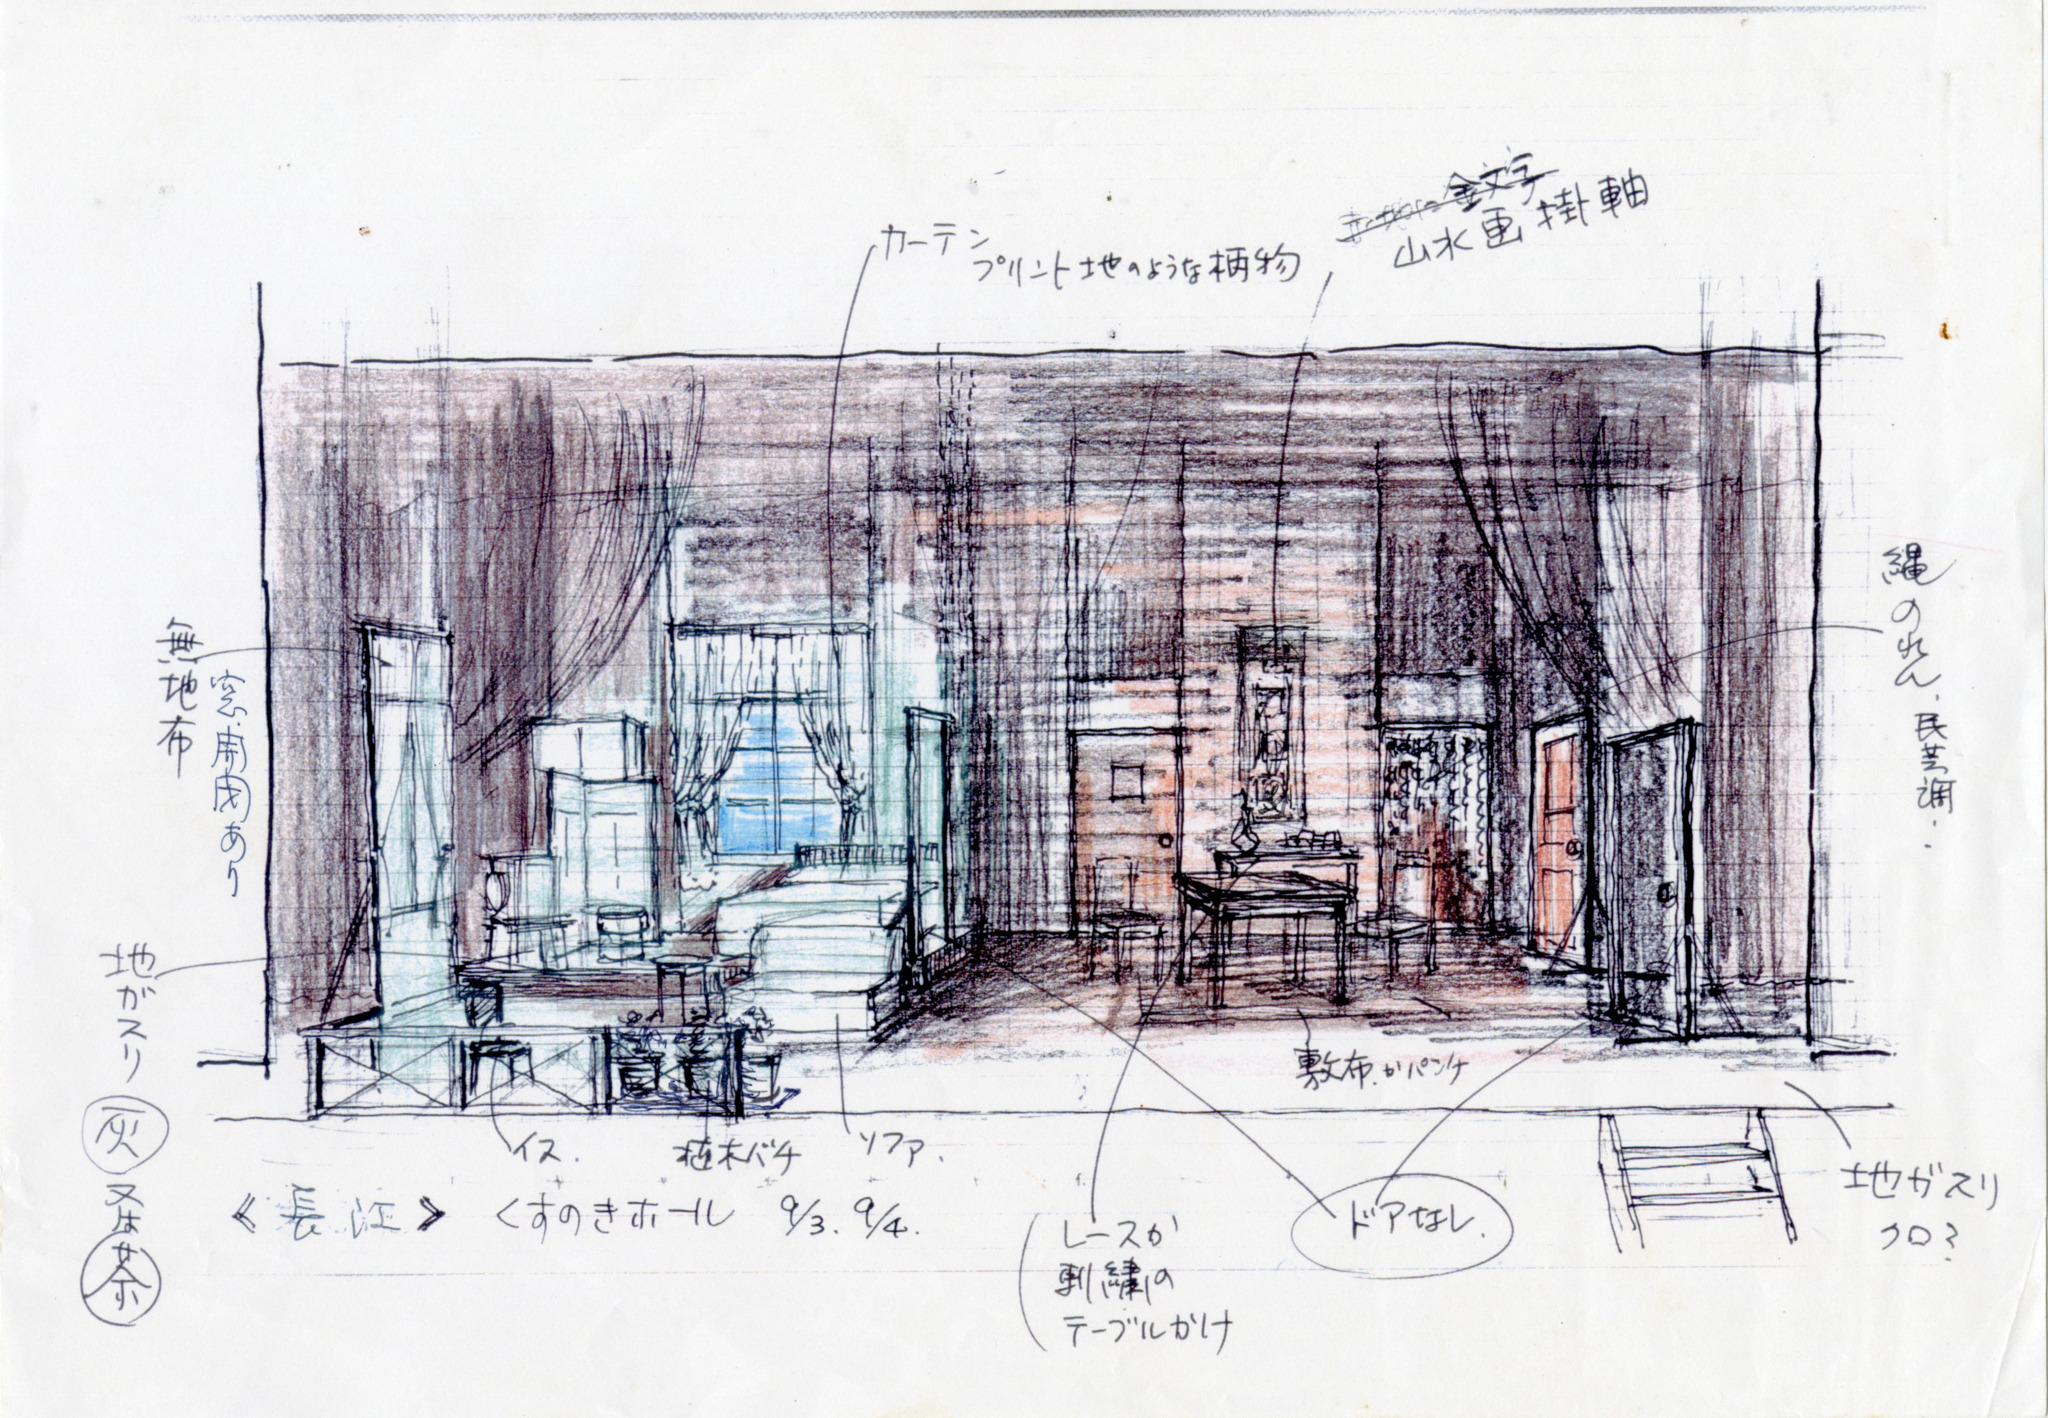 金文字
山水画掛軸
カーテン
プリント地のような柄物
縄のれん、民芸調.
無地布
窓.開閉あり
地ガスリ
灰又は茶
敷布.かパンチ
イス.
植木バチ
ソファ.
ドアなし.
地ガスリ
クロ?
レースか
刺繍の
テーブルかけ
《長江》 くすのきホール 9/3. 9/4.